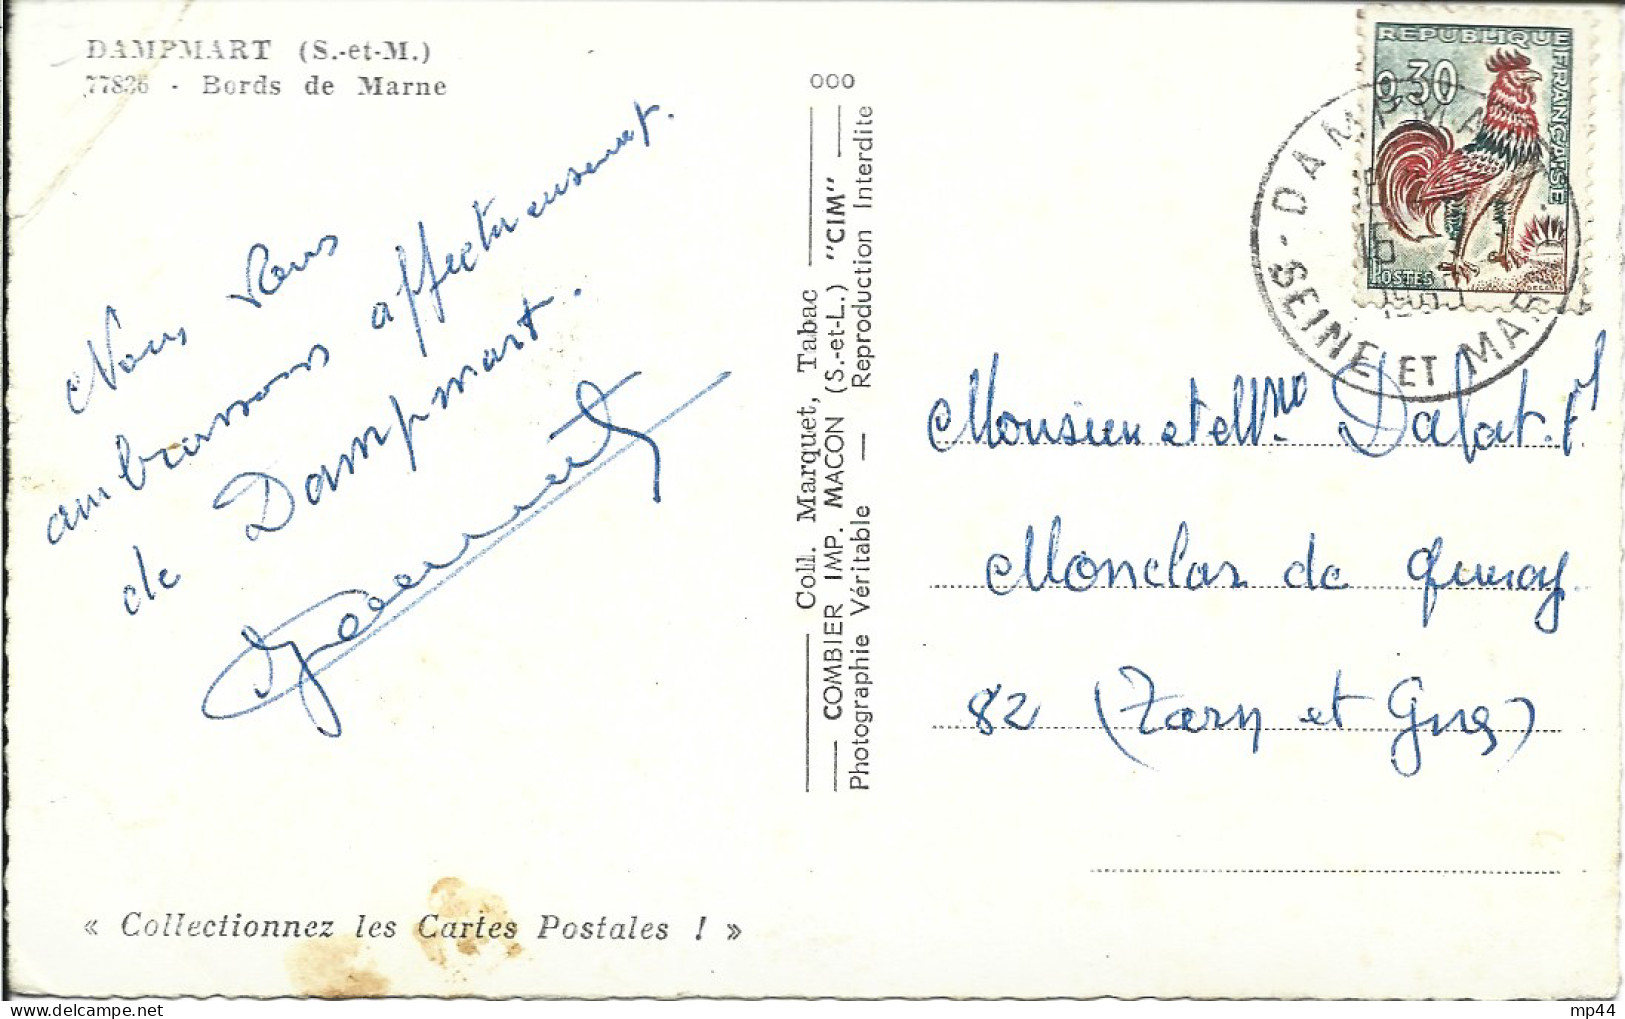 DAMPMART (S.-et-M.)
77836 - Bords de Marne
Nous vous
embrassons affectueusement.
de Dampmart.
« Collectionnez les Cartes Postales ! »
000
Coll. Marquet, Tabac
COMBIER IMP. MACON (S.-et-L.) "CIM"
Photographie Véritable — Reproduction Interdite
REPUBLIQUE FRANÇAISE
0,30
POSTES
DAMPMART
16
SEINE ET MARNE
Monsieur et Mme
Monclar de Quercy
82 (Tarn et Gne)
mp44